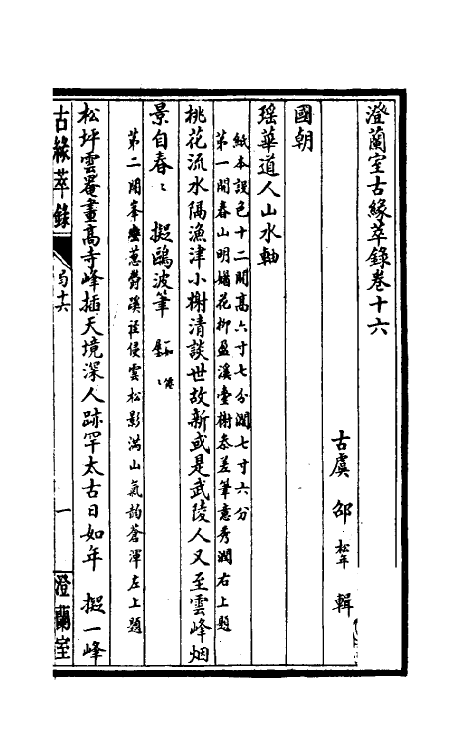 澄蘭室古緣萃錄卷十六
古虞 邵松年 輯
國朝
瑤華道人山水軸
紙本設色十二開高六寸七分濶七寸六分
第一開春山明媚花柳盈溪臺榭參差筆意秀潤右上題
桃花流水隔漁津小榭清談世故新或是武陵人又至雲峰烟
景自春〻 擬鷗波筆
第二開峯巒蔥鬱溪徑侵雲松影滿山氣韵蒼渾左上題
松坪雲罨畫高寺峰插天境深人跡罕太古日如年 擬一峰
古緣萃錄 卷十六 一 澄蘭室